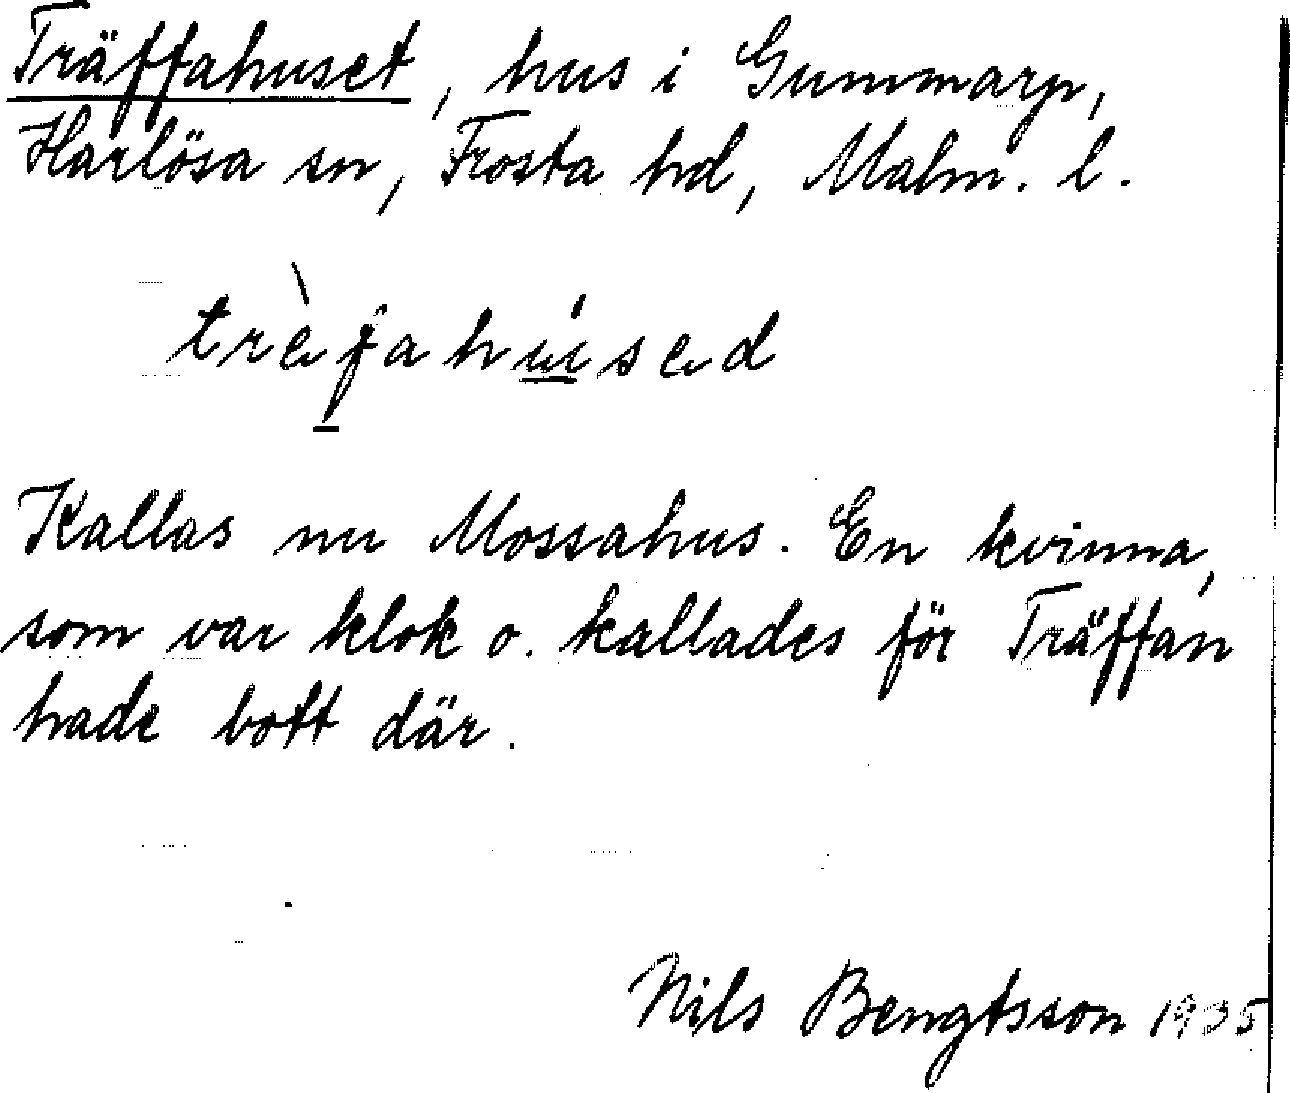 Träffahuset, hus i Gummarp,
Harlösa sn, Frosta hd, Malm. l.
trèfahúsed
Kallas nu Mossahus. En kvinna,
som var klok o. kallades för Träffan
hade bott där.
Nils Bengtsson 1935